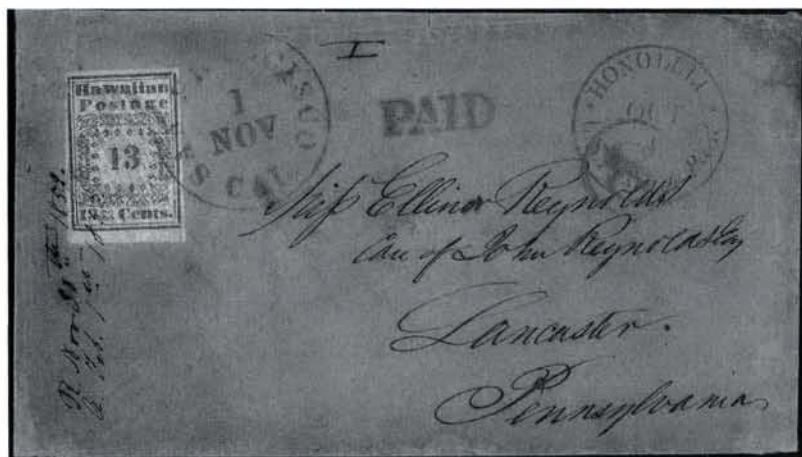 Hawaiian
Postage
13
Cents.
1
NOV
CAL.
PAID
HONOLULU
OCT
Miss Ellinor Reynolds
Care of John Reynolds Esq
Lancaster.
Pennsylvania